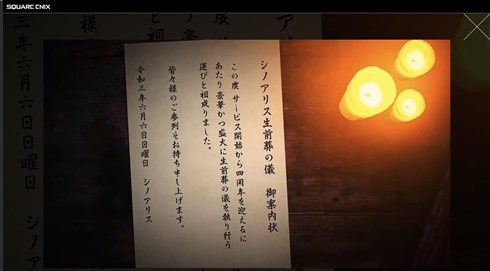 SQUARE ENIX
シノアリス生前葬の儀　御案内状
この度 サービス開始から四周年を迎えるに
あたり豪華かつ盛大に生前葬の儀を執り行う
運びと相成りました。
皆々様のご参列をお待ち申し上げます。
令和三年六月六日日曜日　シノアリス